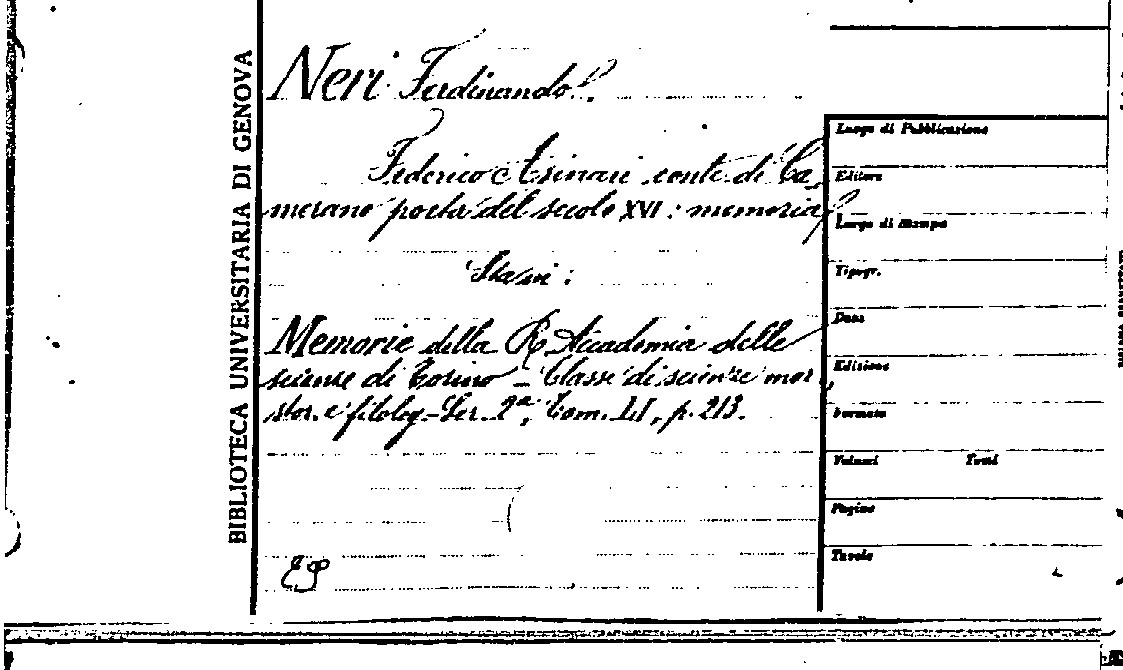 BIBLIOTECA UNIVERSITARIA DI GENOVA
Neri Ferdinando.
Federico Asinari conte di Ca-
merano poeta del secolo XVI: memoria
Stasi:
Memorie della R. Accademia delle
scienze di Torino - Classe di scienze mor.,
stor. e filolog - Ser. 2ª, Tom. LI, p. 213.
Luogo di Pubblicazione
Editore
Luogo di Stampa
Tipogr.
Data
Edizione
Formato
Volumi Tomi
Pagine
Tavole